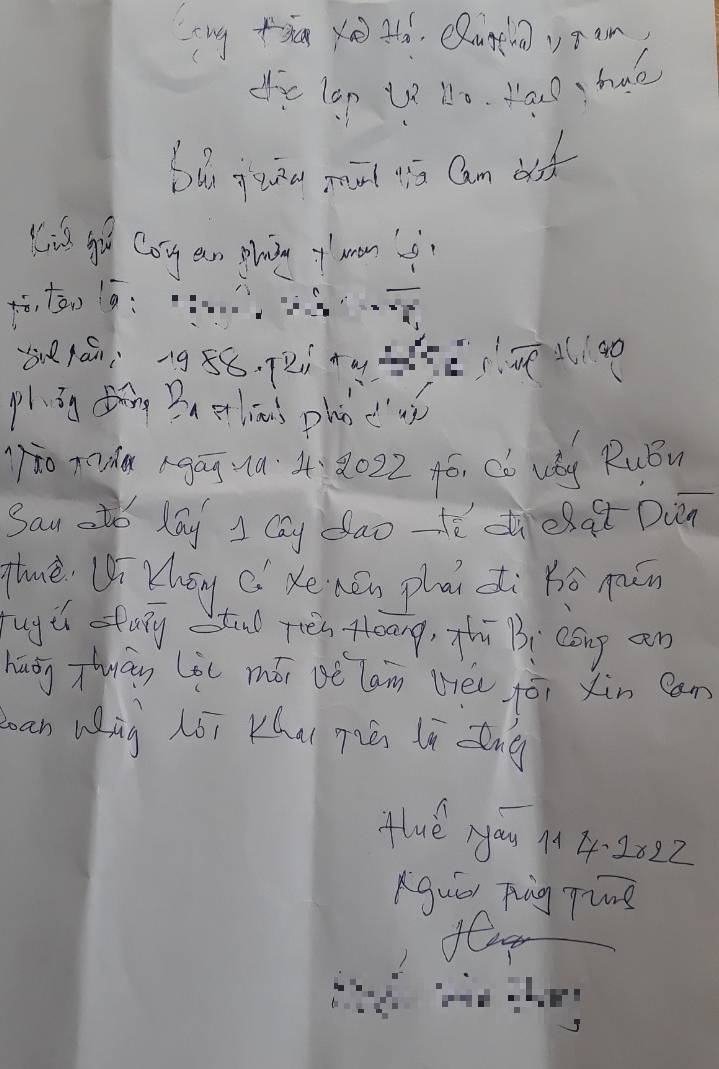 Cộng hòa Xã Hội chủ nghĩa V nam
độc lập tự do hạnh phúc
bản tường trình Và Cam kết
Kính gửi Công an phường thuận lộc
tôi tên là:
sinh năm: 1988. trú tại
phường Đông Ba thành phố Huế
Vào trưa ngày 10.4.2022 tôi Có uống Rượu
Sau đó lấy 1 cây dao để đi chặt Dừa
thuê. Vì Không Có Xe nên phải đi Bộ trên
tuyến đường đinh tiên Hoàng. thì Bị công an
Thuận lộc mời về làm việc tôi Xin Cam
đoan những lời Khai trên là đúng
Huế ngày 11 4.2022
Người tường trình